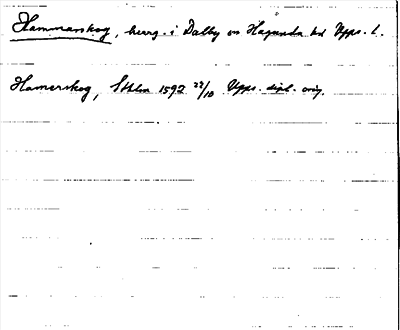 Hammarskog, herrg. i Dalby sn Hagunda hd Upps. l.
Hamerskog, Sthlm 1592 22/10 Upps. dipl. orig.